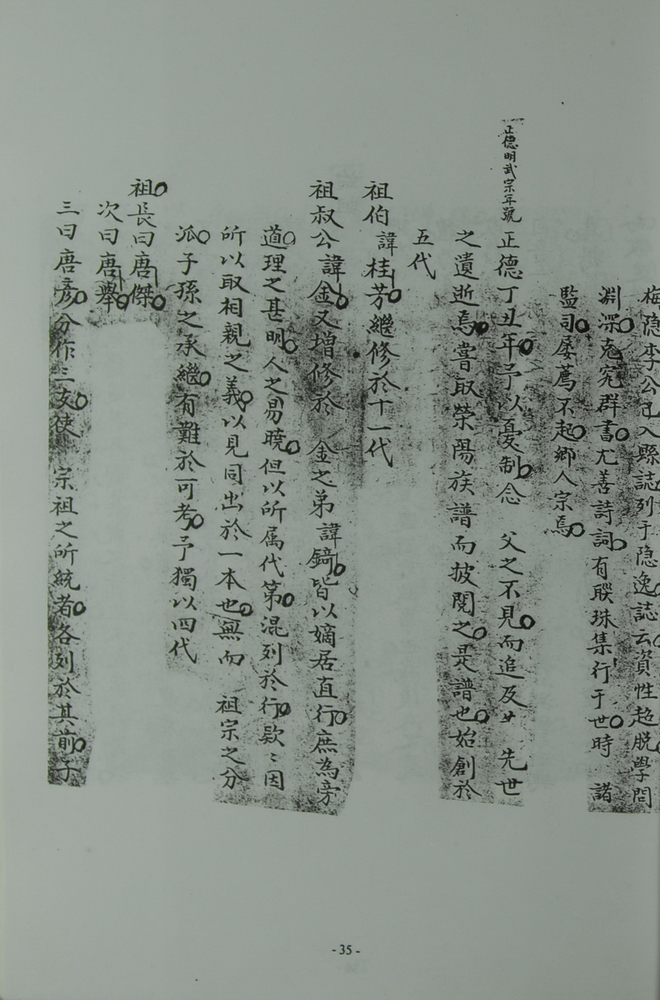 梅隐李公已入縣誌列于隐逸誌云資性超脱學問
淵深克究群書尤善詩詞有聫珠集行于世時諸
監司屡薦不起鄉人宗焉
正德明武宗年號 正德丁丑年予以憂制念 父之不見而追及 先世
之遺逝焉嘗取榮陽族譜而披閱之是譜也始創於
五代
祖伯諱桂芳繼修於十一代
祖叔公諱金又增修於 金之弟諱錡皆以嫡居直行庶為旁
道理之甚明人之易曉但以所属代第混列於行欵因
所以取相親之義以見同出於一本也無而 祖宗之分
派子孫之承繼有難於可考予獨以四代
祖長曰唐傑
次曰唐舉
三曰唐彦分作三支使 宗祖之所統者各列於其前子
- 35 -